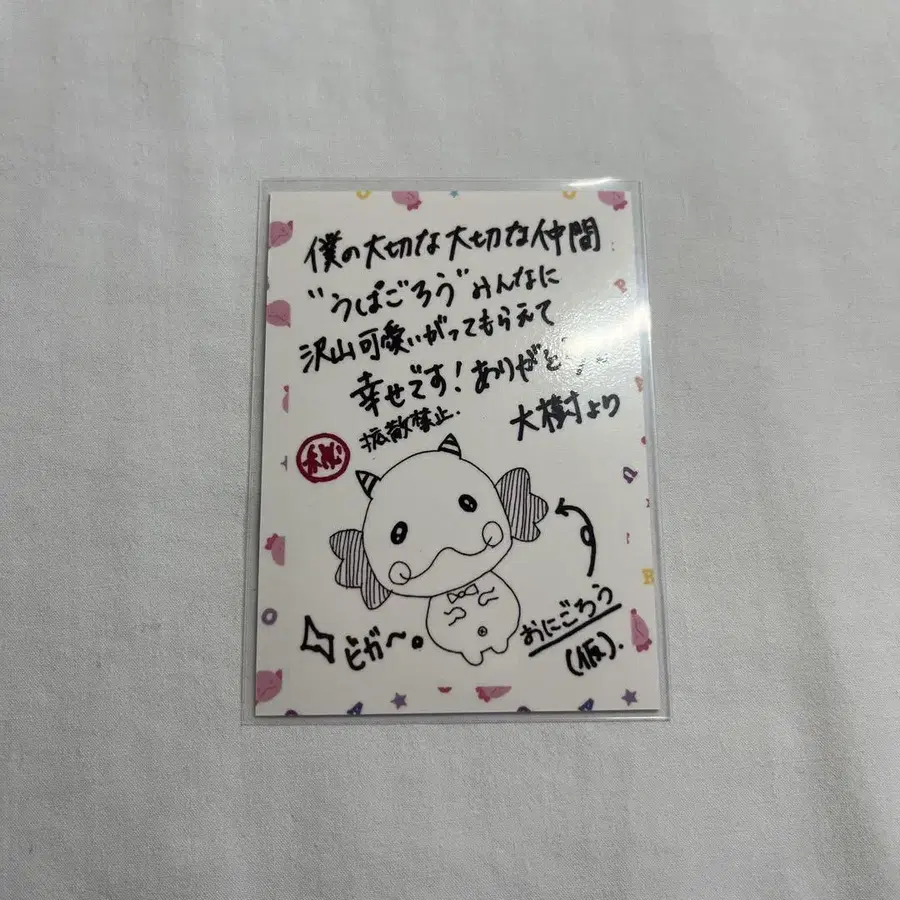 僕の大切な大切な仲間
"うぱごろう"みんなに
沢山可愛いがってもらえて
幸せです!ありがとう
大樹より
拡散禁止.
秘
おにごろう
(仮).
ビガ〜。